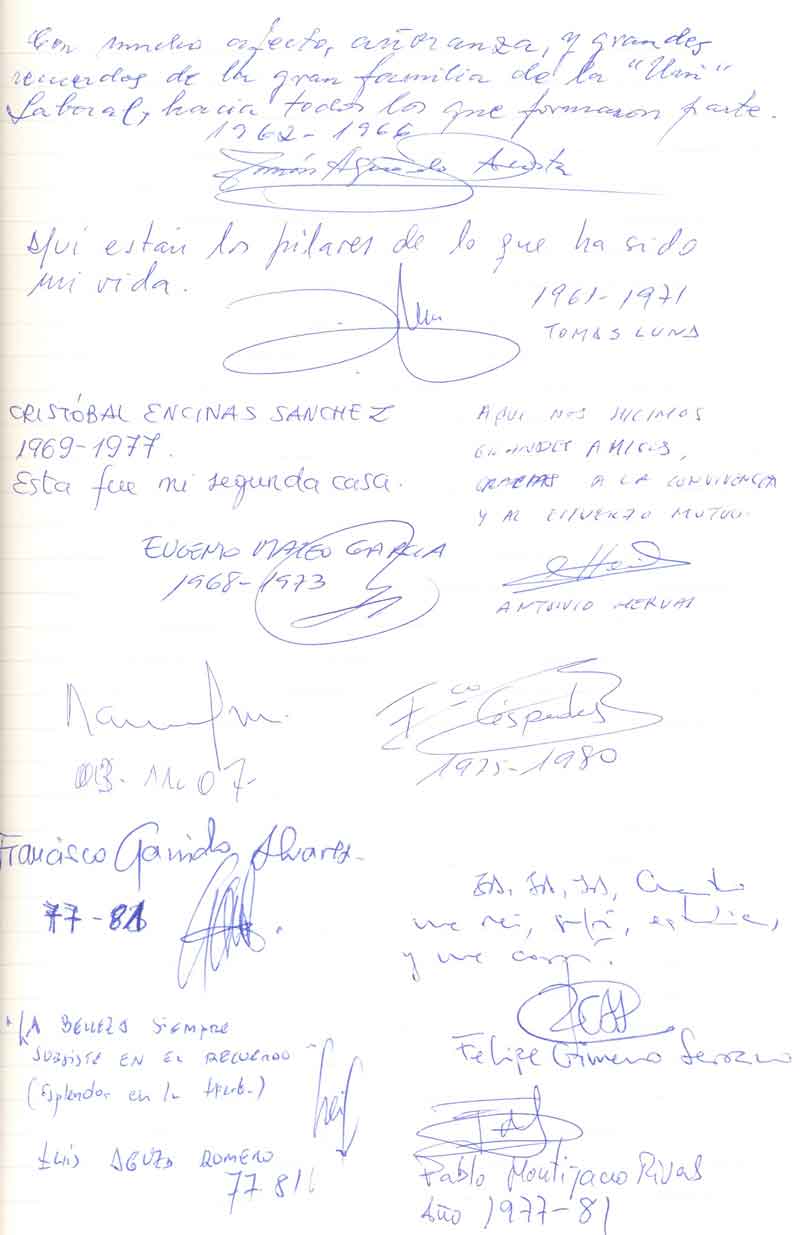 Con mucho afecto, añoranza, y grandes
recuerdos de la gran familia de la "Uni"
Laboral, hacia todos los que formaron parte.
1962-1966
Simón Aguado Acosta
Aquí están los pilares de lo que ha sido
mi vida.
1961-1971
TOMAS LUNA
CRISTÓBAL ENCINAS SANCHEZ
1969-1977.
Esta fue mi segunda casa.
AQUI NOS HICIMOS
GRANDES AMIGOS,
GRACIAS A LA CONVIVENCIA
Y AL ESFUERZO MUTUO.
ANTONIO HERVAS
EUGENIO MATEO GARCIA
1968-1973
03.11.07.
Fco Céspedes
1975-1980
Francisco Garrido Alvarez.
77-81
JA, JA, JA, Cuanto
me reí, sufrí, estudié,
y me
Felipe Gimeno Serrano
"LA BELLEZA SIEMPRE
SUBSISTE EN EL RECUERDO"
(Esplendor en la )
LUIS ROMERO
77.81
Pablo Rivas
Año 1977-81